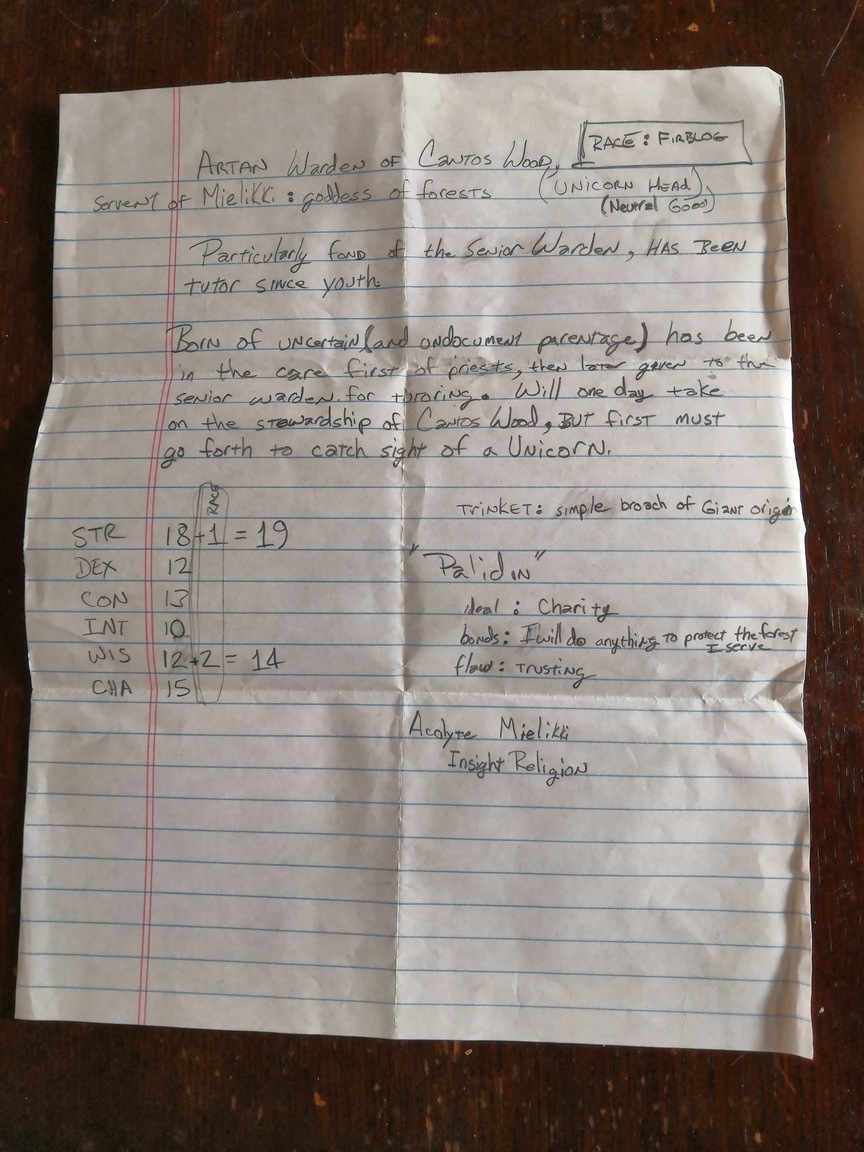 RACE: FIRBLOG
ARTAN Warden OF CANTOS WOOD,
Servent of Mielikki: goddess of forests (UNICORN HEAD),
(Neutral Good)
Particularly fond of the Senior Warden, HAS BEEN
tutor since youth.
Born of uncertain (and undocument parentage) has been
in the care first of priests, then later given to the
senior warden for tutoring. Will one day take
on the stewardship of Cantos Wood, BUT first must
go forth to catch sight of a UNICORN.
RACE
TRINKET: simple broach of Giant origin
STR 18 +1 = 19
"Palidin"
DEX 12
CON 13
ideal: Charity
INT 10
bonds: I will do anything to protect the forest
I serve
WIS 12 +2 = 14
flaw: TRUSTING
CHA 15
Acolyte Mielikki
Insight Religion